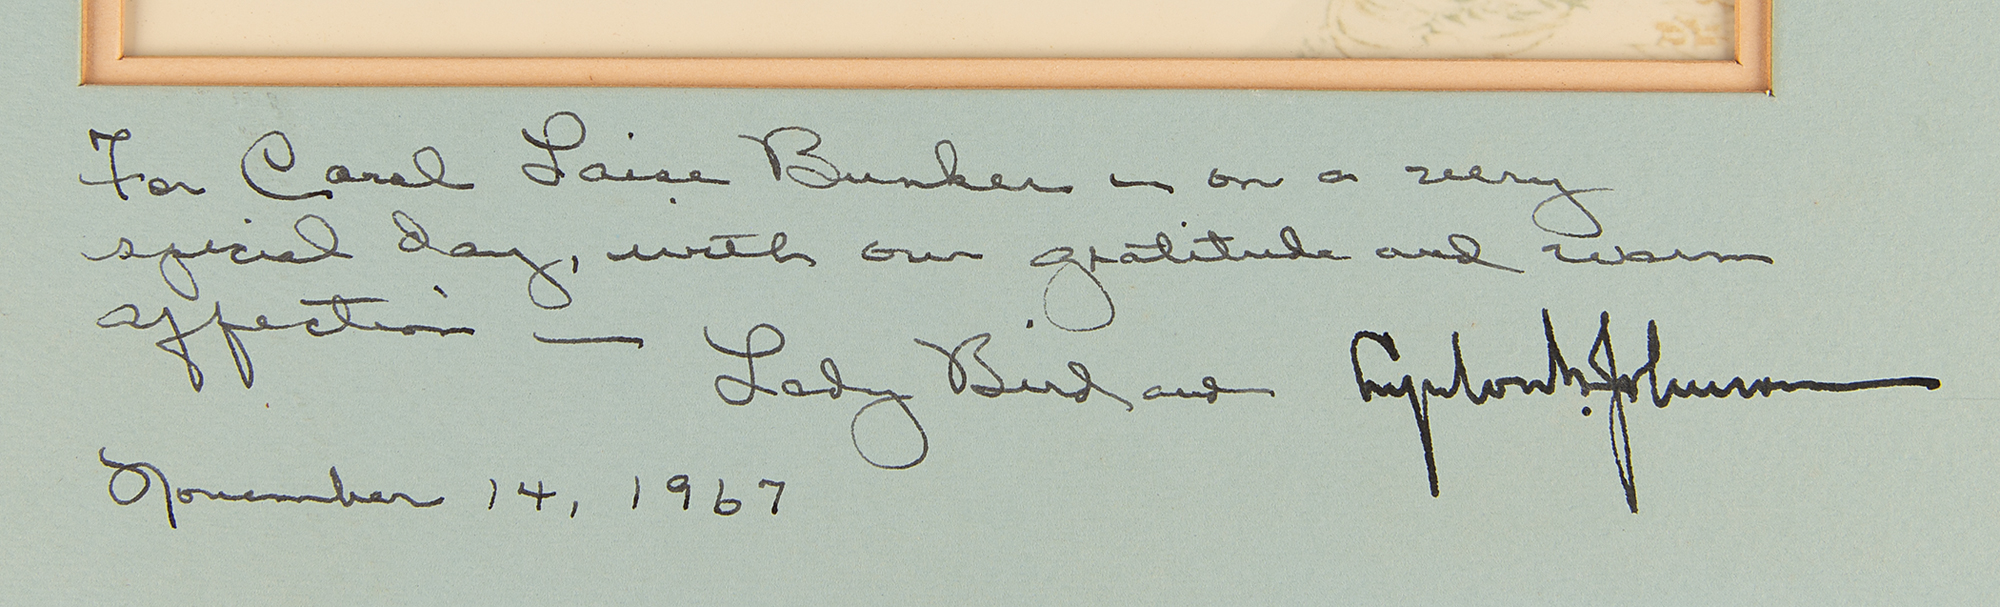 For Carol Laise Bunker — on a very
special day, with our gratitude and warm
affection — Lady Bird and Lyndon B. Johnson
November 14, 1967